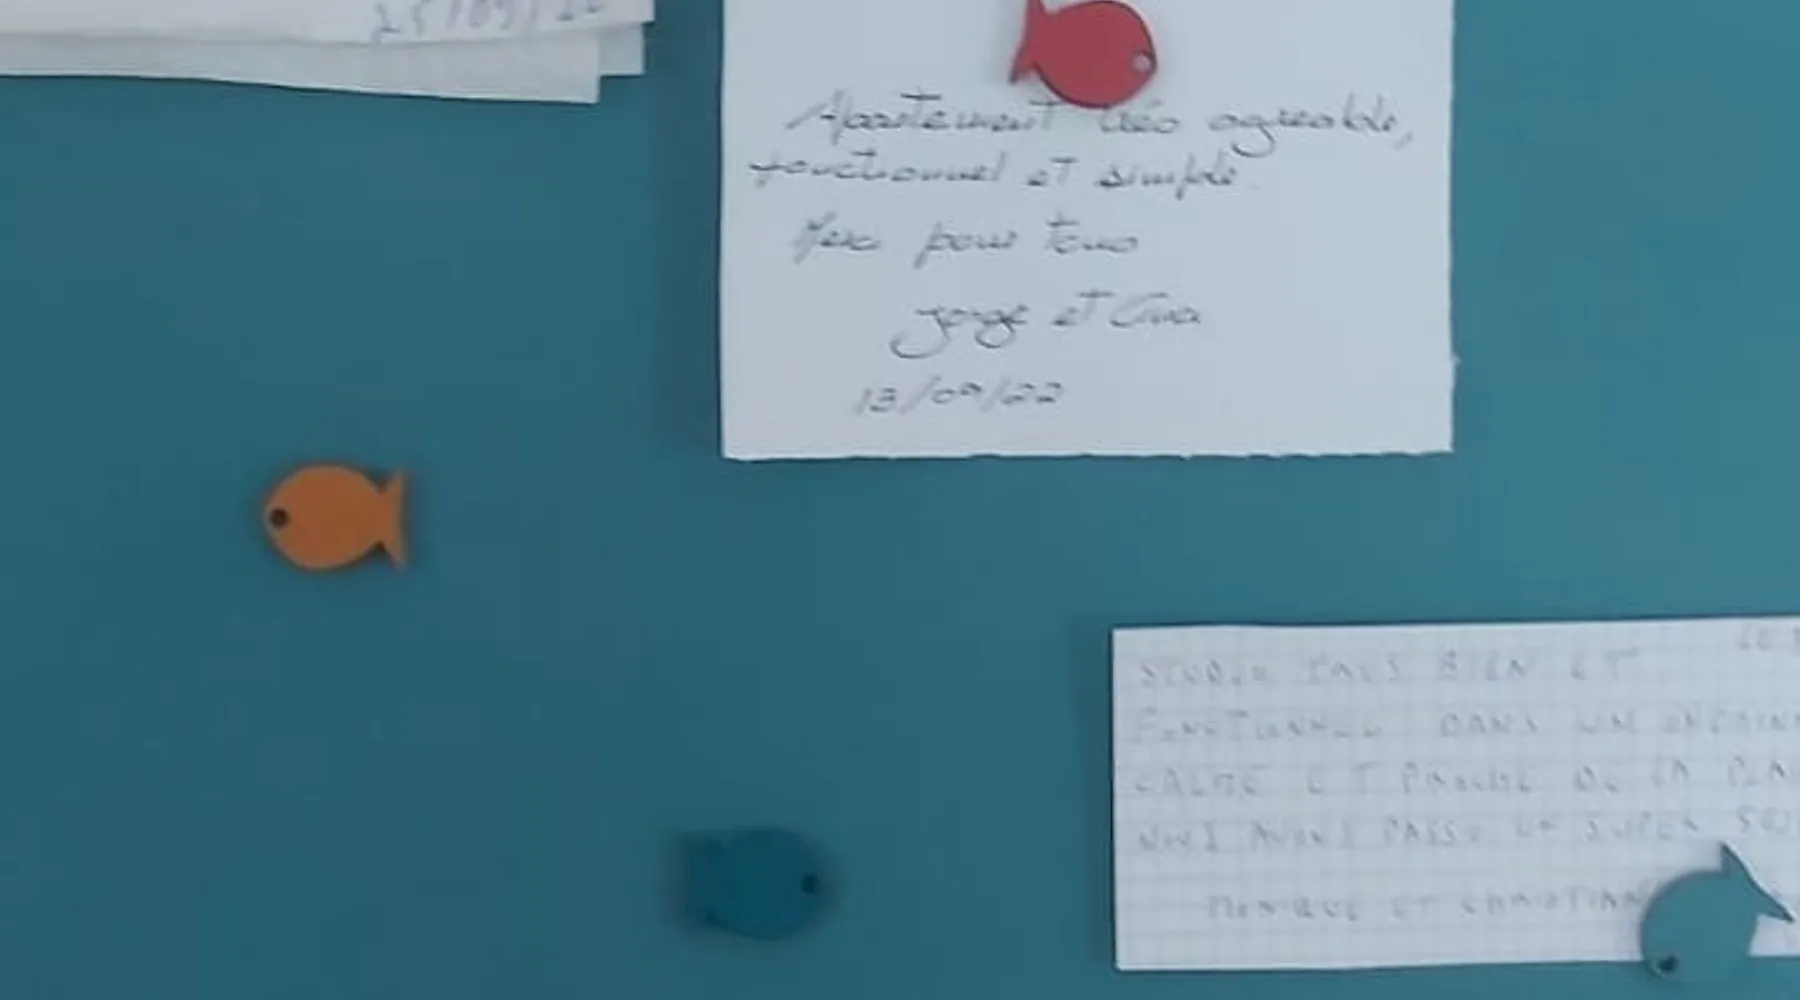 25/09/22
Apartement très agréable,
fonctionnel et simple.
Merci pour tous
Jorge et
13/09/22
STUDIO TRES BIEN ET
FONCTIONNEL DANS UN
CALME ET PROCHE DE LA
NOUS AVONS PASSE UN SUPER
MONIQUE ET CHRISTIAN